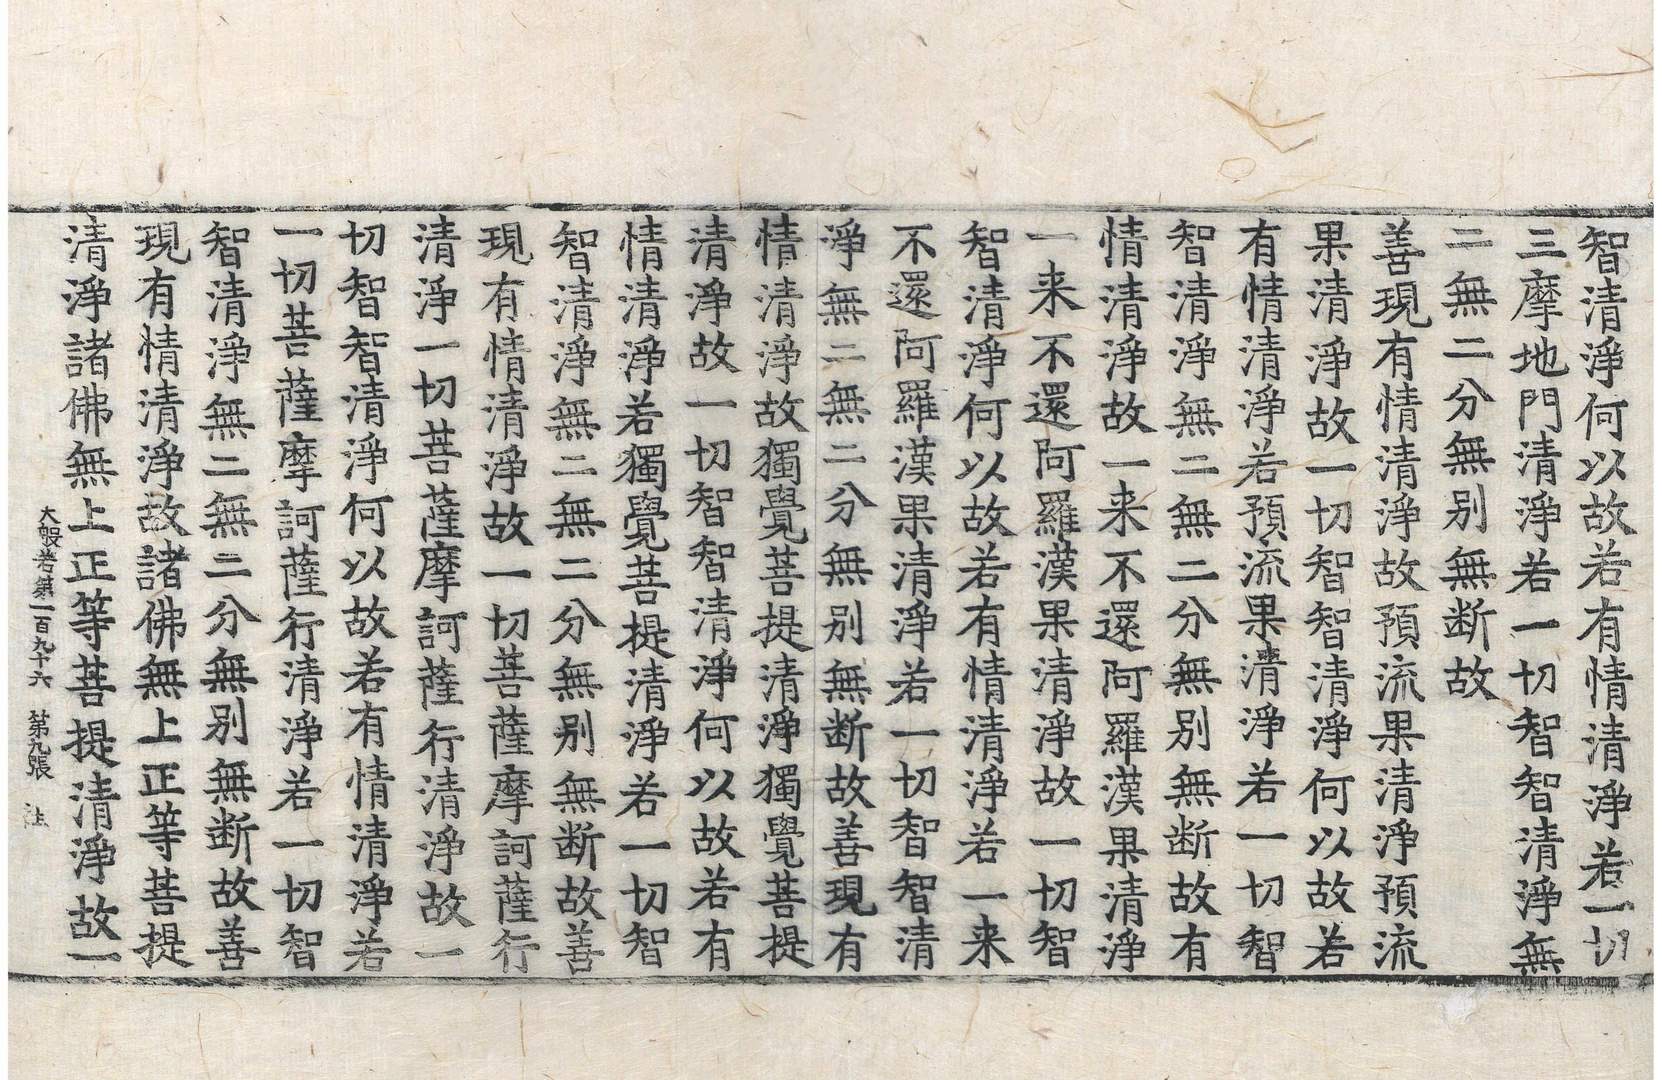 智清淨何以故若有情清淨若一切
三摩地門清淨若一切智智清淨無
二無二分無别無断故
善現有情清淨故預流果清淨預流
果清淨故一切智智清淨何以故若
有情清淨若預流果清淨若一切智
智清淨無二無二分無别無断故有
情清淨故一来不還阿羅漢果清淨
一来不還阿羅漢果清淨故一切智
智清淨何以故若有情清淨若一来
不還阿羅漢果清淨若一切智智清
淨無二無二分無别無断故善現有
情清淨故獨覺菩提清淨獨覺菩提
清淨故一切智智清淨何以故若有
情清淨若獨覺菩提清淨若一切智
智清淨無二無二分無别無断故善
現有情清淨故一切菩薩摩訶薩行
清淨一切菩薩摩訶薩行清淨故一
切智智清淨何以故若有情清淨若
一切菩薩摩訶薩行清淨若一切智
智清淨無二無二分無别無断故善
現有情清淨故諸佛無上正等菩提
清淨諸佛無上正等菩提清淨故一
大般卷第一百九十六 第九張